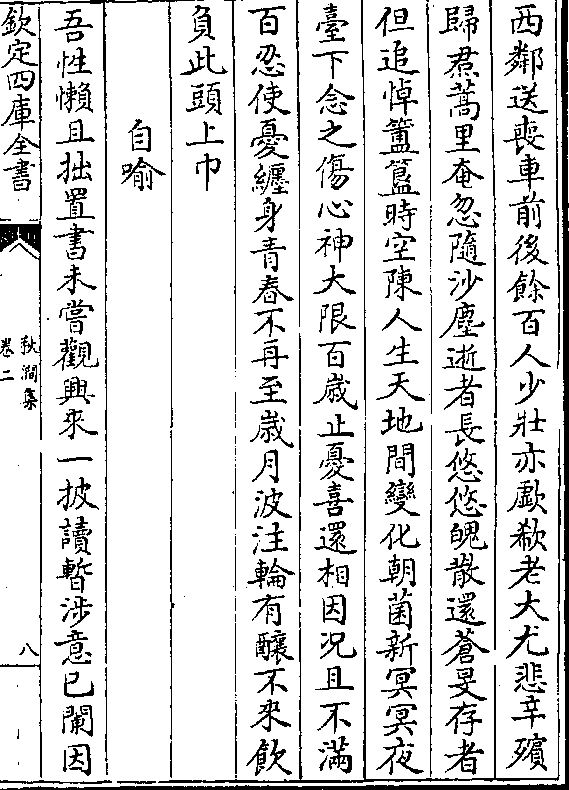 西鄰送喪車前後餘百人少壯亦歔欷老大尤悲辛殯
歸焄蒿里奄忽隨沙塵逝者長悠悠魄散還蒼旻存者
但追悼簠簋時空陳人生天地間變化朝菌新冥冥夜
臺下念之傷心神大限百歲止憂喜還相因况且不滿
百忍使憂纏身青春不再至歲月波注輪有釀不來飲
負此頭上巾
自喻
吾性懶且拙置書未嘗觀興來一披讀暫涉意已闌因
欽定四庫全書
秋澗集
卷二
八